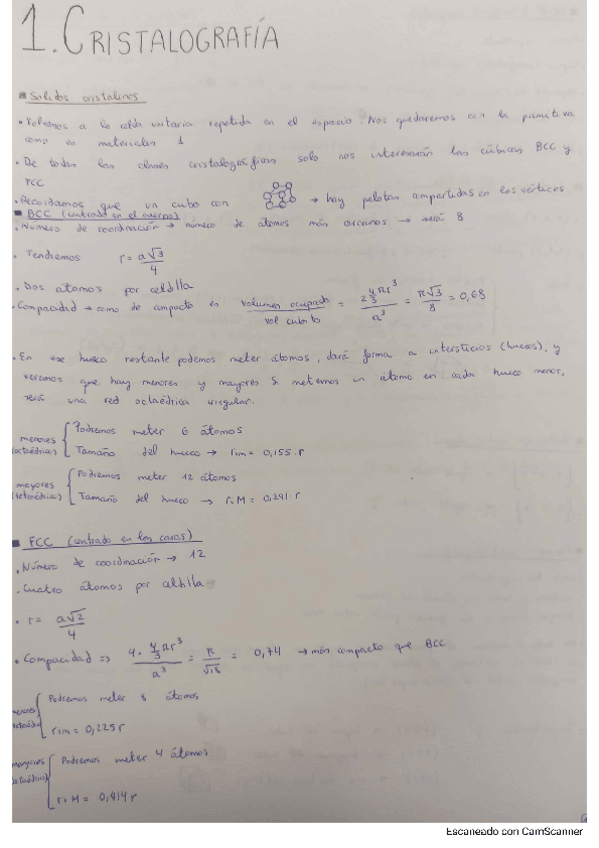 1. CRISTALOGRAFÍA
▪ Sólidos cristalinos
• Volvemos a la celda unitaria repetida en el espacio. Nos quedaremos con la primitiva
como en materiales 1
• De todas las clases cristalográficas solo nos interesarán las cúbicas BCC y
FCC
• Recordamos que un cubo con → hay pelotas compartidas en los vértices
▪ BCC (centrado en el cuerpo)
• Número de coordinación → número de átomos más cercanos → será 8
• Tendremos r = a√3/4
• Dos átomos por celdilla
• Compacidad → como de compacto es: volumen ocupado / vol cubito = 2 4/3 πr³ / a³ = π√3/8 = 0,68
• En ese hueco restante podemos meter átomos, dará forma a intersticios (huecos), y
veremos que hay menores y mayores. Si metemos un átomo en cada hueco menor,
será una red octaédrica irregular.
menores (octaédricas) { Podremos meter 6 átomos
Tamaño del hueco → rim = 0,155·r
mayores (tetraédrica) { Podremos meter 12 átomos
Tamaño del hueco → r.M = 0,291·r
▪ FCC (centrado en las caras)
• Número de coordinación → 12
• Cuatro átomos por celdilla
• r = a√2/4
• Compacidad => 4· 4/3 πr³ / a³ = π/√18 = 0,74 → más compacto que BCC
menores { Podremos meter 8 átomos
rim = 0,225 r
mayores (octaédrica) { Podremos meter 4 átomos
r.M = 0,414 r
Escaneado con CamScanner